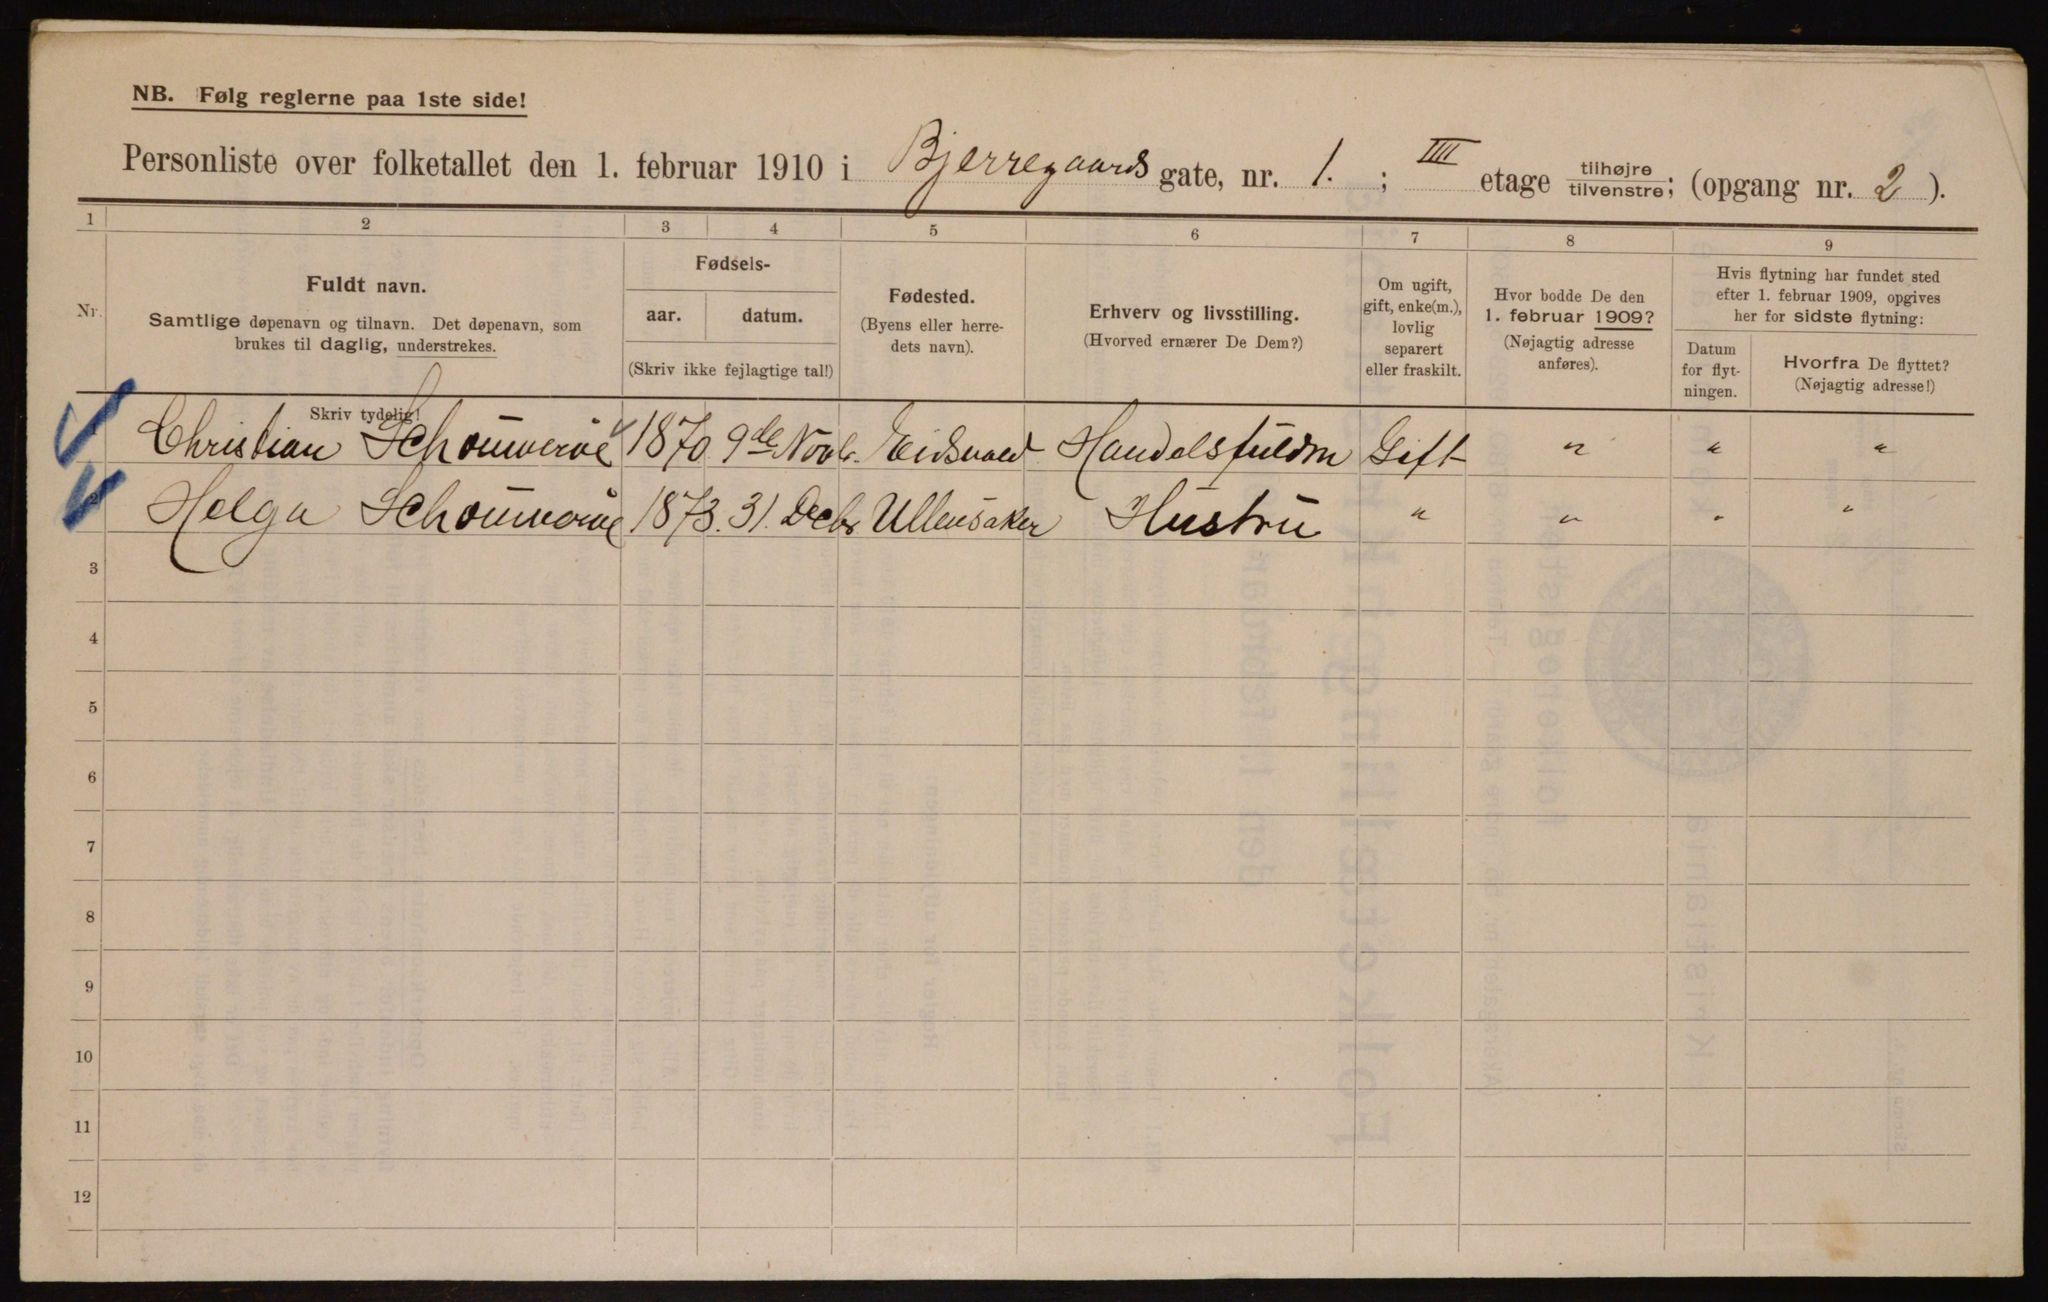 NB. Følg reglerne paa 1ste side!
Personliste over folketallet den 1. februar 1910 i Bjerregaards gate, nr. 1. ; IIII etage tilhøjre tilvenstre; (opgang nr. 2 ).
1 2 3 4 5 6 7 8 9
Nr.
Fuldt navn.
Samtlige døpenavn og tilnavn. Det døpenavn, som
brukes til daglig, understrekes.
Skriv tydelig!
Fødsels-
aar. datum.
(Skriv ikke fejlagtige tal!)
Fødested.
(Byens eller herre-
dets navn).
Erhverv og livsstilling.
(Hvorved ernærer De Dem?)
Om ugift,
gift, enke(m.),
lovlig
separert
eller fraskilt.
Hvor bodde De den
1. februar 1909?
(Nøjagtig adresse
anføres).
Hvis flytning har fundet sted
efter 1. februar 1909, opgives
her for sidste flytning:
Datum
for flyt-
ningen.
Hvorfra De flyttet?
(Nøjagtig adresse!)
Christian 1870 9de Novb. Eidsvold Handelsfuldm Gift " " "
2 Helga 1873. 31. Decbr Ullensaker Hustru " " " "
3
4
5
6
7
8
9
10
11
12